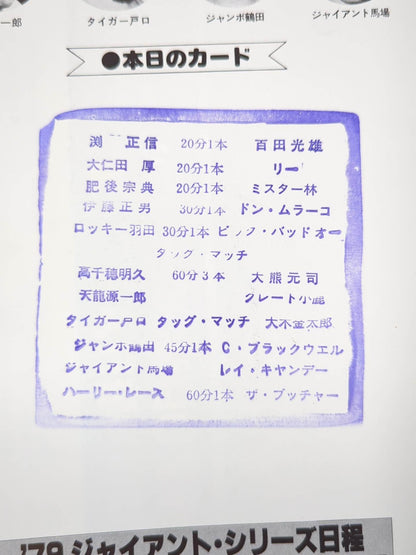 一郎 タイガー戸口 ジャンボ鶴田 ジャイアント馬場
●本日のカード
渕 正信 20分1本 百田光雄
大仁田 厚 20分1本 リー
肥後宗典 20分1本 ミスター林
伊藤正男 30分1本 ドン・ムラーコ
ロッキー羽田 30分1本 ビック・バッドオー
タッグ・マッチ
高千穂明久 60分3本 大熊元司
天龍源一郎 グレート小鹿
タイガー戸口 タッグ・マッチ 大木金太郎
ジャンボ鶴田 45分1本 C・ブラックウエル
ジャイアント馬場 レイ・キャンデー
ハーリー・レース 60分1本 ザ・ブッチャー
'79ジャイアント・シリーズ日程